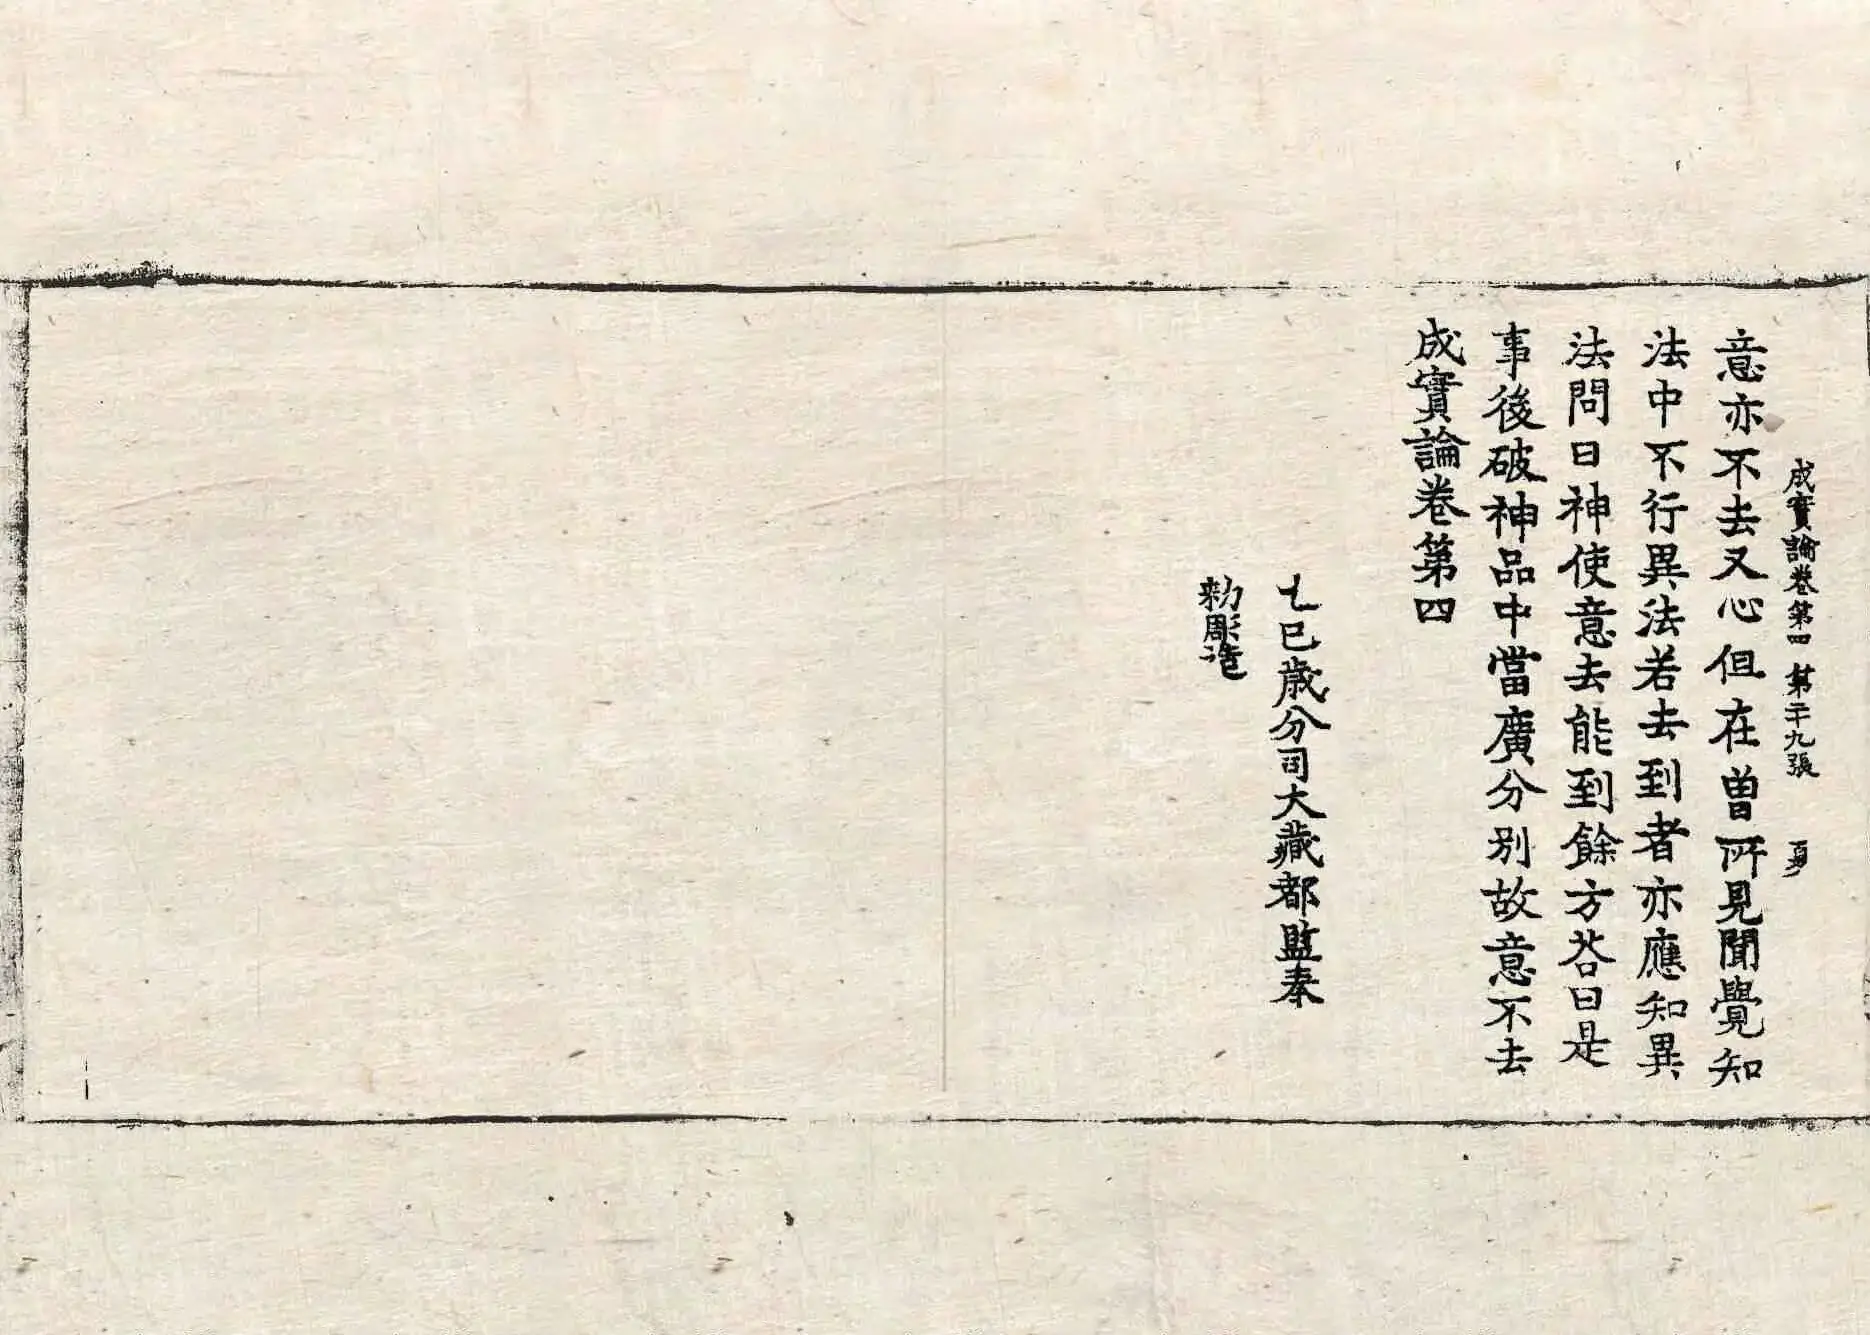 成實論卷第四 第二十九張 夏
意亦不去又心但在曽所見聞覺知
法中不行異法若去到者亦應知異
法問曰神使意去能到餘方荅曰是
事後破神品中當廣分別故意不去
成實論卷第四
乙巳歳分司大藏都監奉
勑彫造